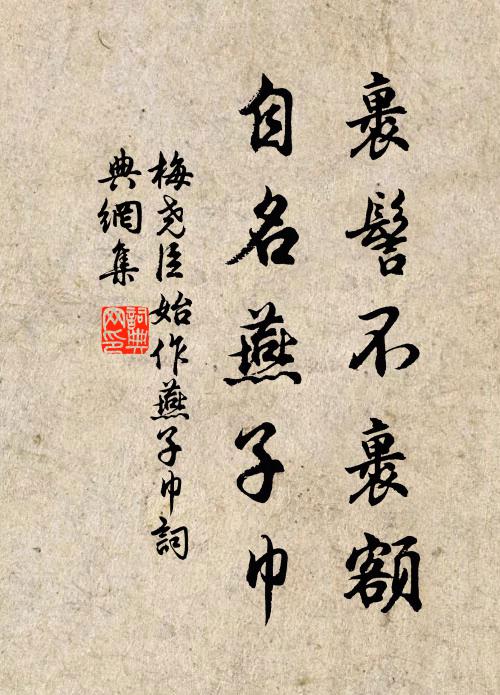 裹髻不裹額
自名燕子巾
梅尧臣始作燕子巾詞
典網集
詞典網印